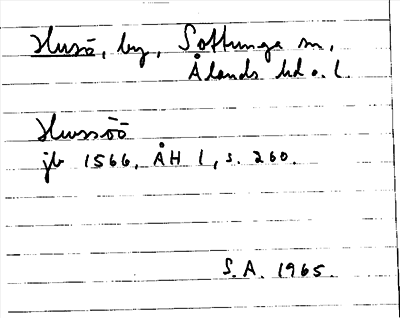 Husö, by, Sottunga sn,
Ålands hd o. l.
Hussöö
jb 1566, ÅH 1, s. 260.
S.A. 1965.